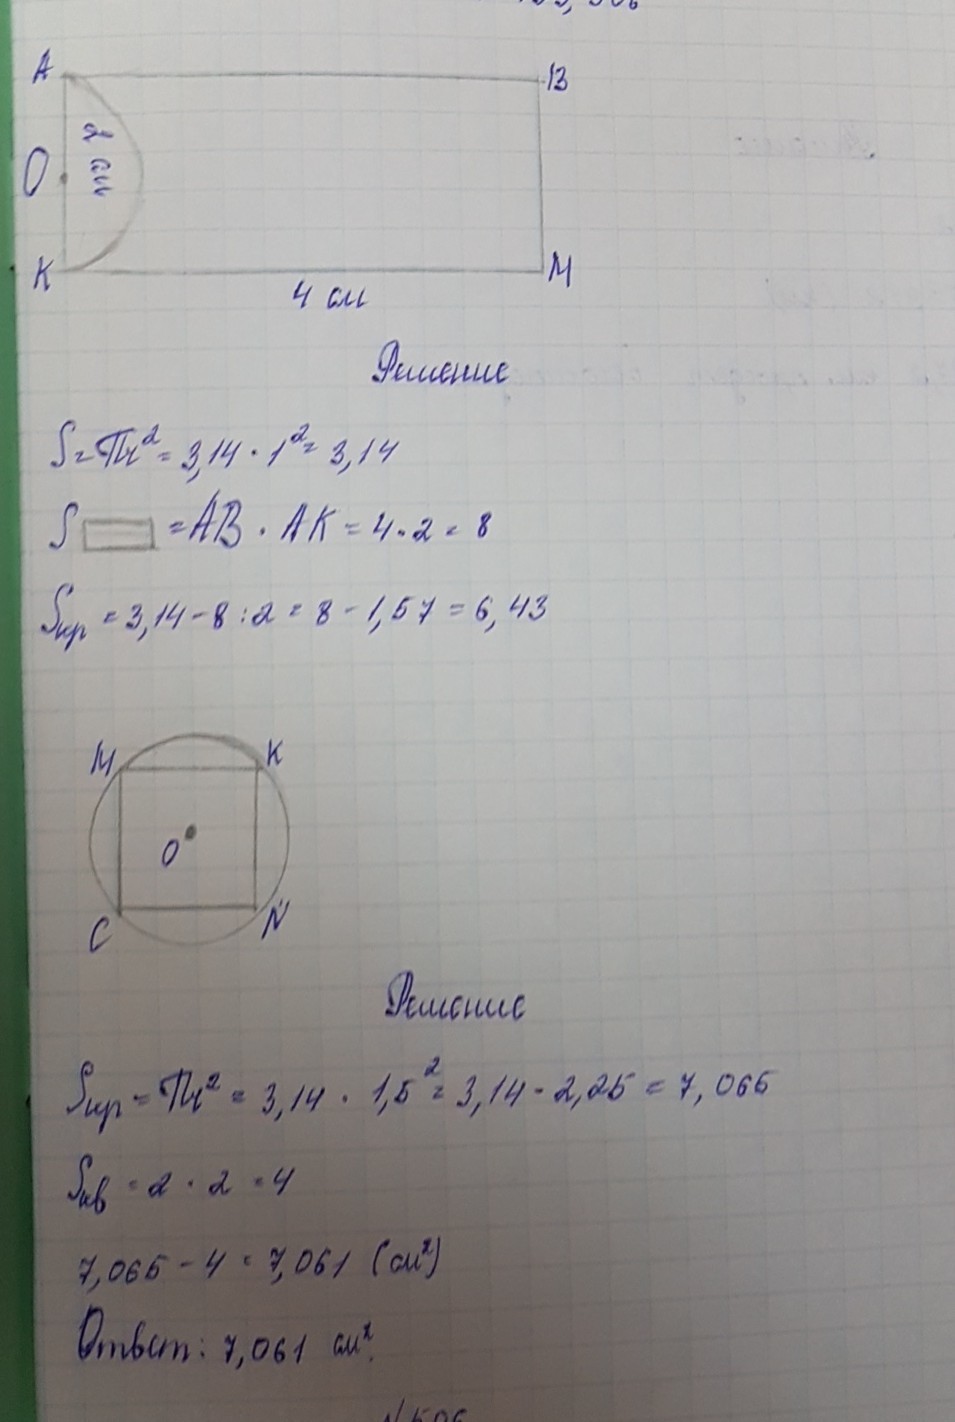 A
B
2 см
O
K
M
4 см
Решение
S = Пr² = 3,14 · 1² = 3,14
S = AB · AK = 4 · 2 = 8
Sкр = 3,14 - 8 : 2 = 8 - 1,57 = 6,43
M
K
O
C
N
Решение
Sкр = Пr² = 3,14 · 1,5² = 3,14 · 2,25 = 7,065
Sкв = 2 · 2 = 4
7,065 - 4 = 7,061 (см²)
Ответ: 7,061 см².